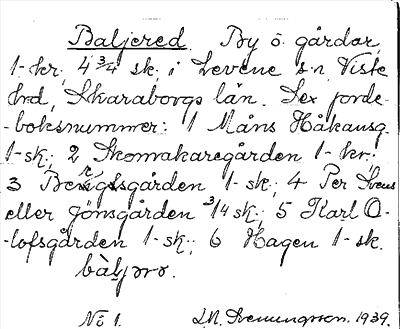 Baljered. By ö. gårdar,
1-kr. 4 3/4 sk. i Levene s:n, Viste
hrd, Skaraborgs län. Sex jorde-
-boksnummer: 1 Måns Håkansg.
1-sk.; 2 Skomakaregården 1-kr.
3 Bengtsgården 1-sk.; 4 Per Svens
eller Jönsgården 3/4 sk.; 5 Karl O-
-lofsgården 1-sk.; 6 Hagen 1-sk.
bàljɔrɔ.
No 1. L.N. Svenungsson. 1939.